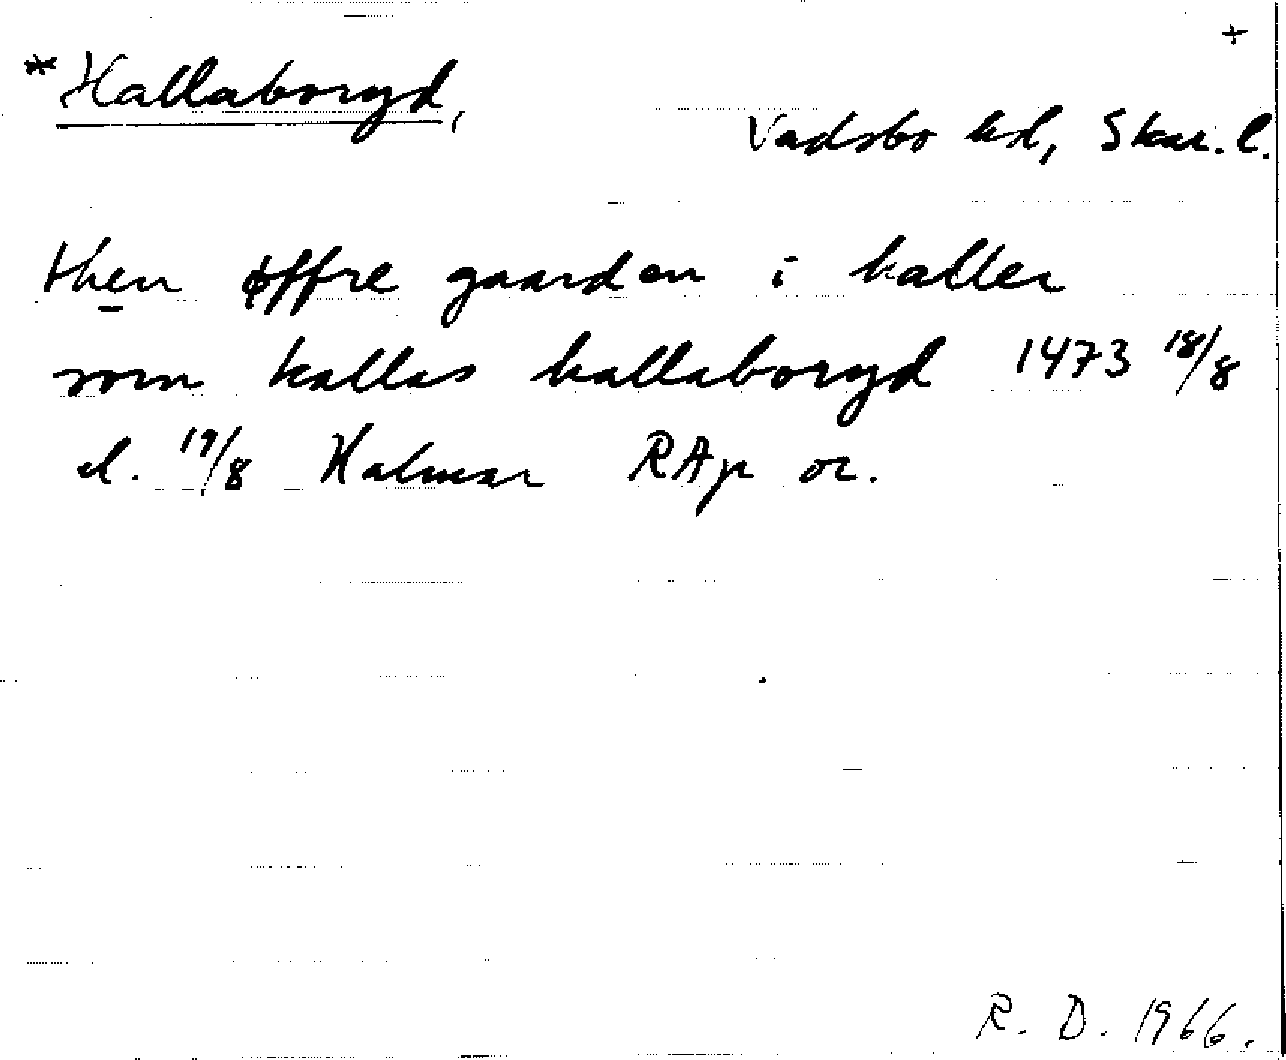 +
*Hallaboryd,
Vadsbo hd, Skar. l.
then øffre gaarden i haller
som kallas hallaboryd 1473 18/8
el. 19/8 Kalmar RAp or.
R. D. 1966.